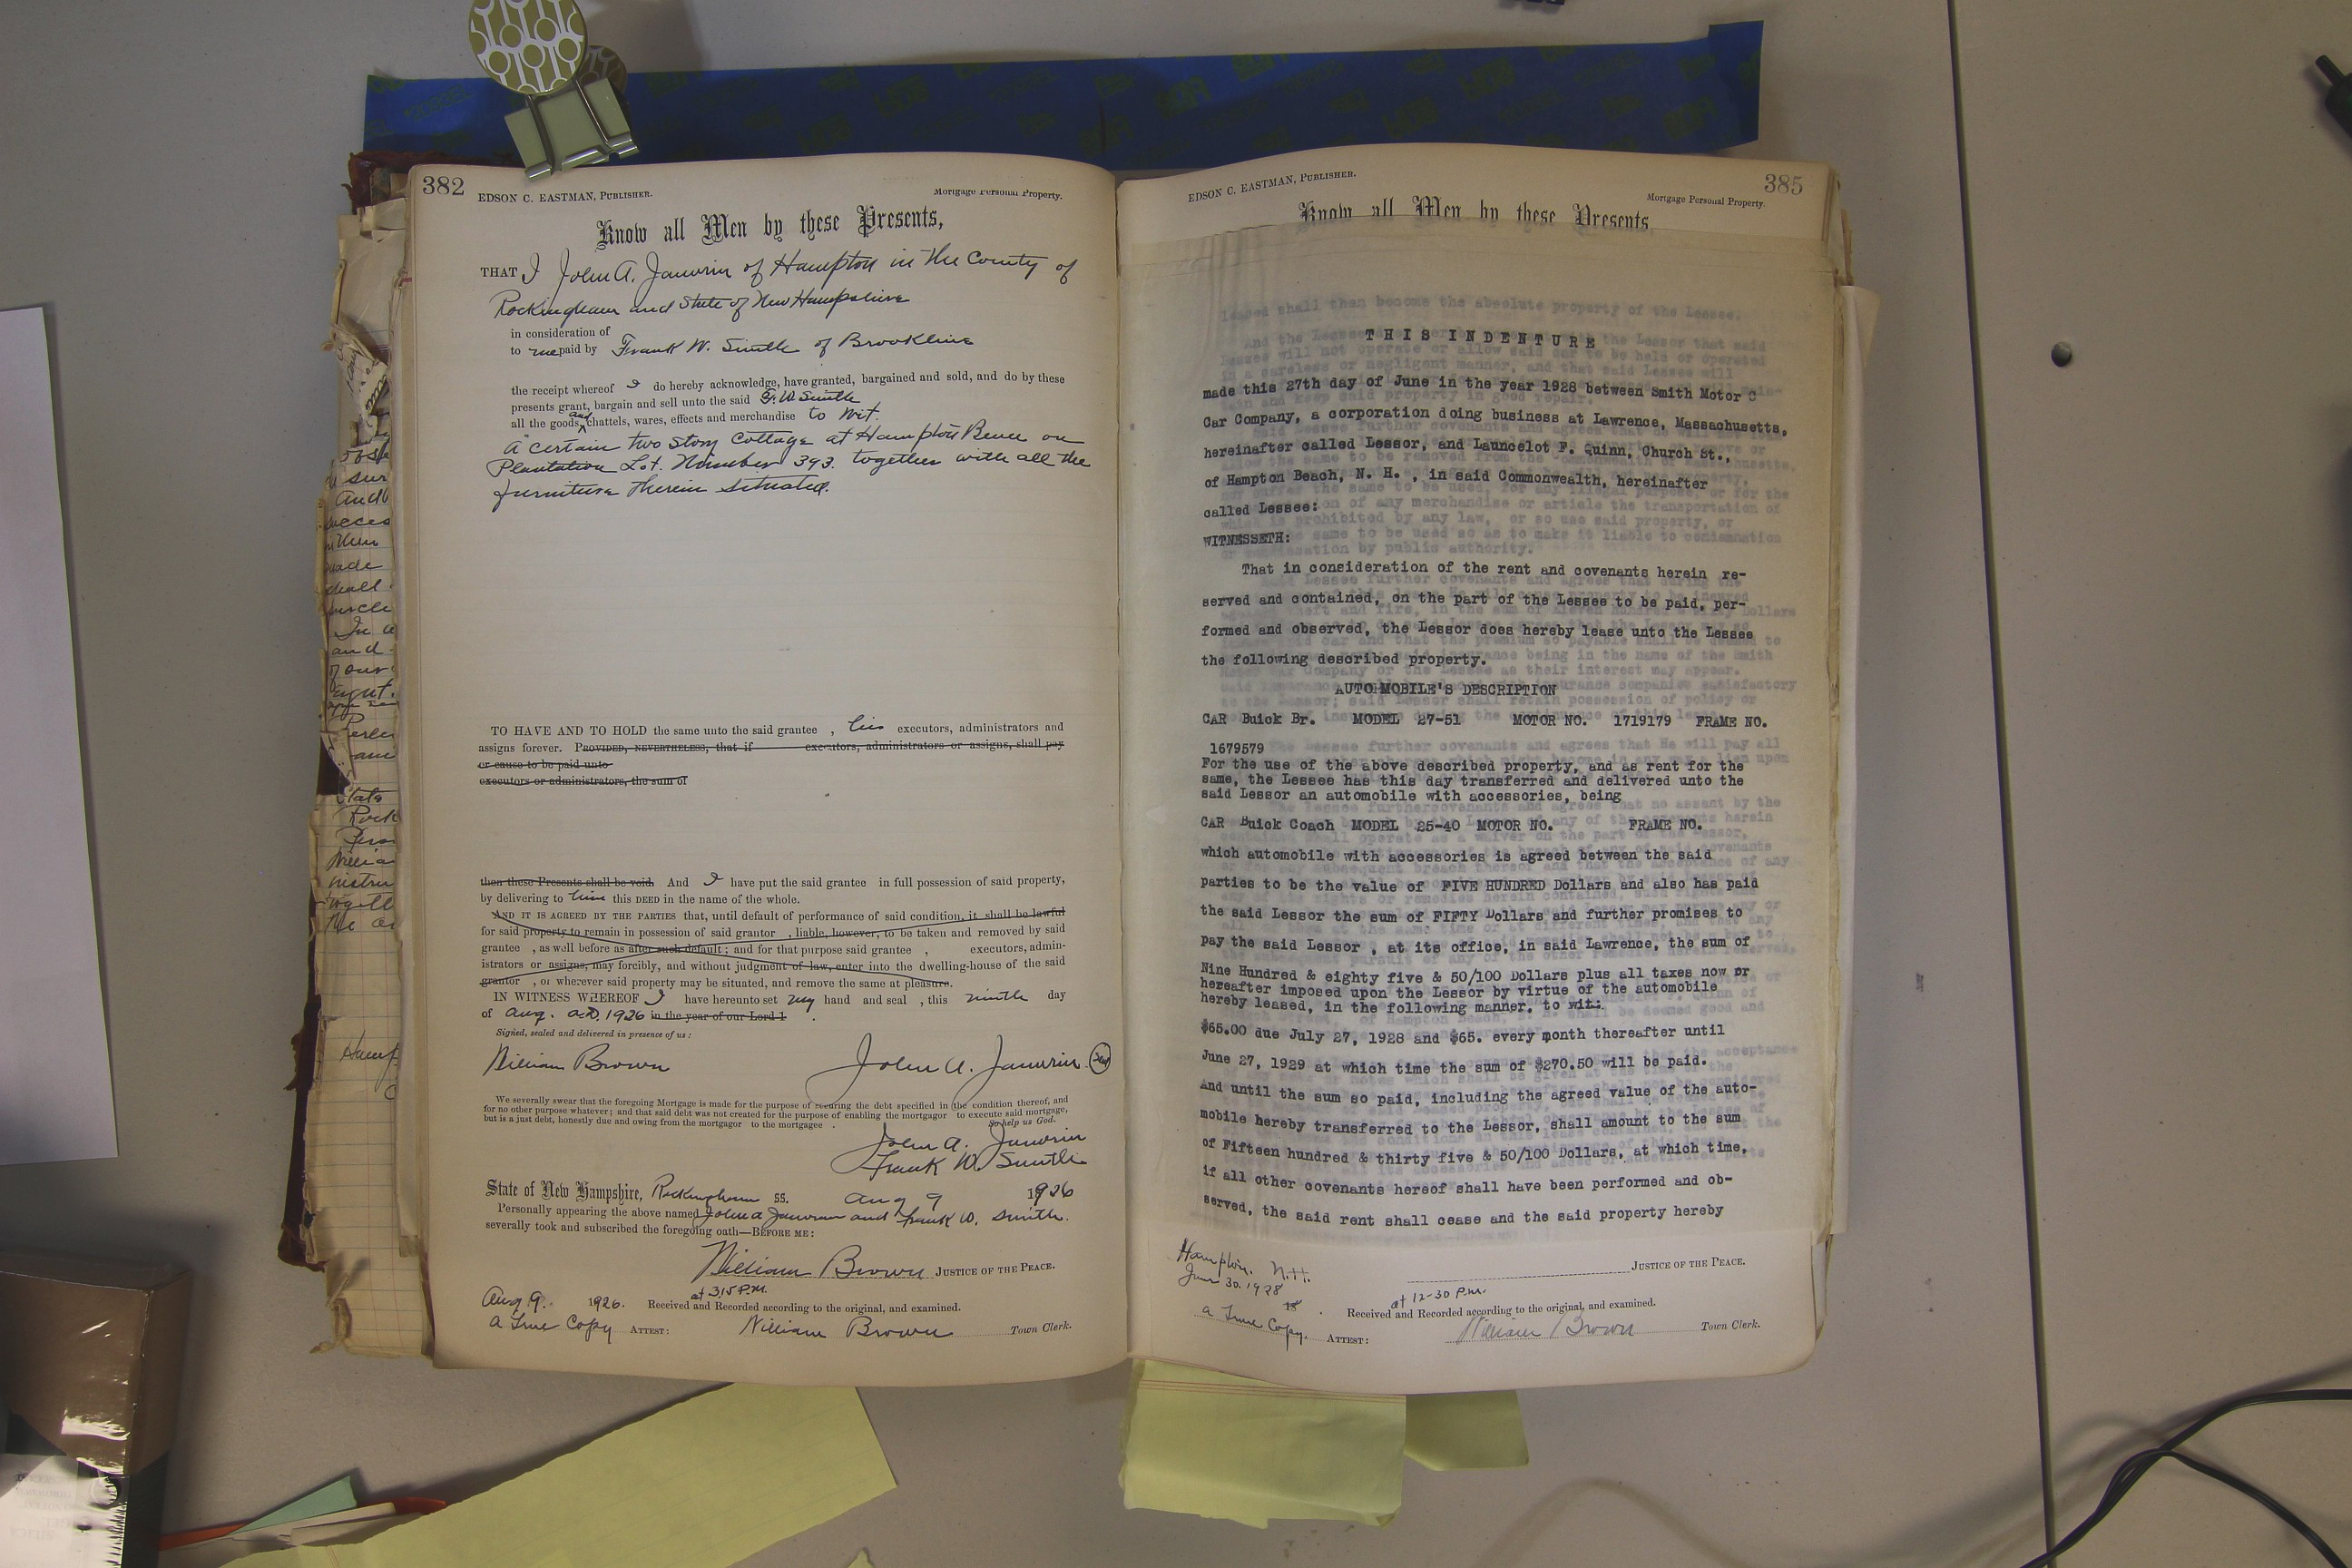 382
EDSON C. EASTMAN, PUBLISHER.
Mortgage Personal Property.
Know all Men by these Presents,
THAT I John A. Janvrin of Hampton in the County of
Rockingham and State of New Hampshire
in consideration of
to me paid by Frank W. Smith of Brookline
the receipt whereof I do hereby acknowledge, have granted, bargained and sold, and do by these
presents grant, bargain and sell unto the said F. W. Smith
all the goods, and chattels, wares, effects and merchandise to wit.
A certain two story Cottage at Hampton Beach on
Plantation Lot. Number 393. together with all the
furniture therein situated.
TO HAVE AND TO HOLD the same unto the said grantee , his executors, administrators and
assigns forever. PROVIDED, NEVERTHELESS, that if executors, administrators or assigns, shall pay
or cause to be paid unto
executors or administrators, the sum of
then these Presents shall be void. And I have put the said grantee in full possession of said property,
by delivering to him this DEED in the name of the whole.
AND IT IS AGREED BY THE PARTIES that, until default of performance of said condition, it shall be lawful
for said property to remain in possession of said grantor , liable, however, to be taken and removed by said
grantee , as well before as after such default; and for that purpose said grantee , executors, admin-
istrators or assigns, may forcibly, and without judgment of law, enter into the dwelling-house of the said
grantor , or wherever said property may be situated, and remove the same at pleasure.
IN WITNESS WHEREOF I have hereunto set my hand and seal , this ninth day
of Aug. A.D. 1926 in the year of our Lord 1 .
Signed, sealed and delivered in presence of us:
William Brown John A. Janvrin. Seal
We severally swear that the foregoing Mortgage is made for the purpose of securing the debt specified in the condition thereof, and
for no other purpose whatever; and that said debt was not created for the purpose of enabling the mortgagor to execute said mortgage,
but is a just debt, honestly due and owing from the mortgagor to the mortgagee . So help us God.
John A. Janvrin
Frank W. Smith
State of New Hampshire, Rockingham SS. Aug 9 1926
Personally appearing the above named John A Janvrin and Frank W. Smith.
severally took and subscribed the foregoing oath—BEFORE ME:
William Brown JUSTICE OF THE PEACE.
at 3.15 P.M.
Aug 9. 1926. Received and Recorded according to the original, and examined.
A True Copy ATTEST: William Brown Town Clerk.
385
EDSON C. EASTMAN, PUBLISHER.
Mortgage Personal Property.
Know all Men by these Presents
THIS INDENTURE
made this 27th day of June in the year 1928 between Smith Motor C
Car Company, a corporation doing business at Lawrence, Massachusetts,
hereinafter called Lessor, and Launcelot F. Quinn, Church St.,
of Hampton Beach, N. H. , in said Commonwealth, hereinafter
called Lessee:
WITNESSETH:
That in consideration of the rent and covenants herein re-
served and contained, on the part of the Lessee to be paid, per-
formed and observed, the Lessor does hereby lease unto the Lessee
the following described property.
AUTOMOBILE'S DESCRIPTION
CAR Buick Br. MODEL 27-51 MOTOR NO. 1719179 FRAME NO.
1679579
For the use of the above described property, and as rent for the
same, the Lessee has this day transferred and delivered unto the
said Lessor an automobile with accessories, being
CAR Buick Coach MODEL 25-40 MOTOR NO. FRAME NO.
which automobile with accessories is agreed between the said
parties to be the value of FIVE HUNDRED Dollars and also has paid
the said Lessor the sum of FIFTY Dollars and further promises to
pay the said Lessor , at its office, in said Lawrence, the sum of
Nine Hundred & eighty five & 50/100 Dollars plus all taxes now or
hereafter imposed upon the Lessor by virtue of the automobile
hereby leased, in the following manner, to wit:
$65.00 due July 27, 1928 and $65. every month thereafter until
June 27, 1929 at which time the sum of $270.50 will be paid.
And until the sum so paid, including the agreed value of the auto-
mobile hereby transferred to the Lessor, shall amount to the sum
of Fifteen hundred & thirty five & 50/100 Dollars, at which time,
if all other covenants hereof shall have been performed and ob-
served, the said rent shall cease and the said property hereby
Hampton. N.H.
June 30. 1928
18 .
JUSTICE OF THE PEACE.
at 12-30 P.M.
Received and Recorded according to the original, and examined.
A True Copy. ATTEST: William Brown Town Clerk.